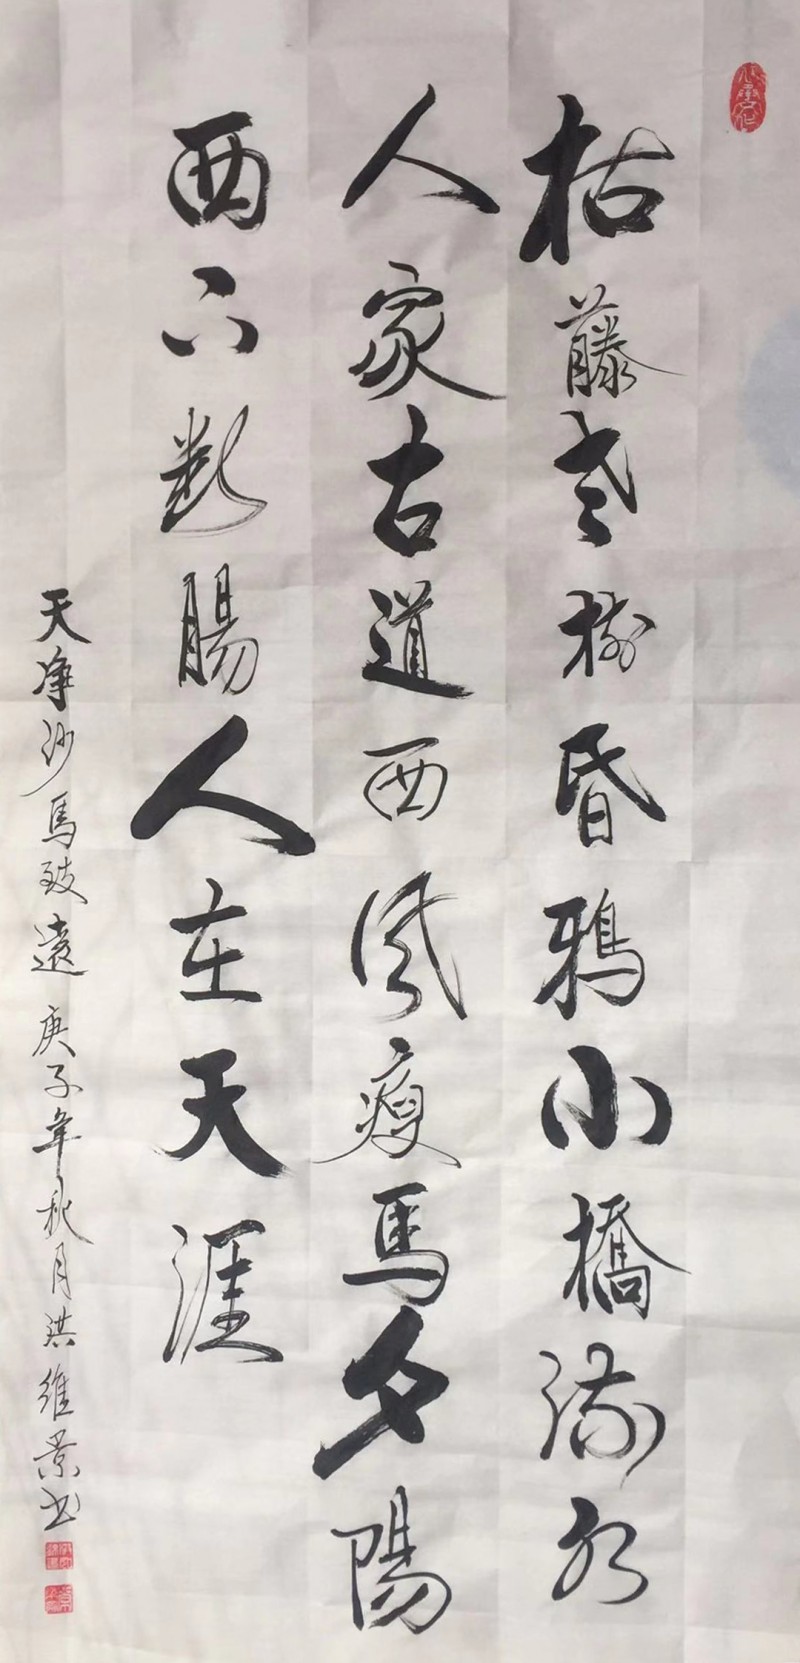 枯藤老樹昏鴉小橋流水
人家古道西風瘦馬夕陽
西下斷腸人在天涯
天淨沙馬致遠庚子年秋月洪維景书